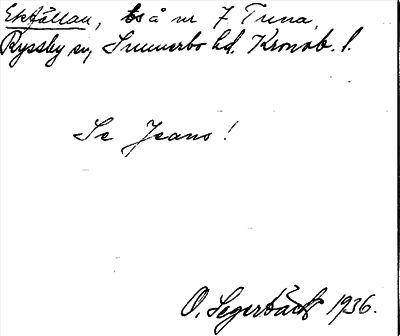 Ekfållan, bs å nr 7 Tuna,
Ryssby sn, Sunnerbo hd. Kronob. l.
Se Jeans!
O. Segerbäck 1936.